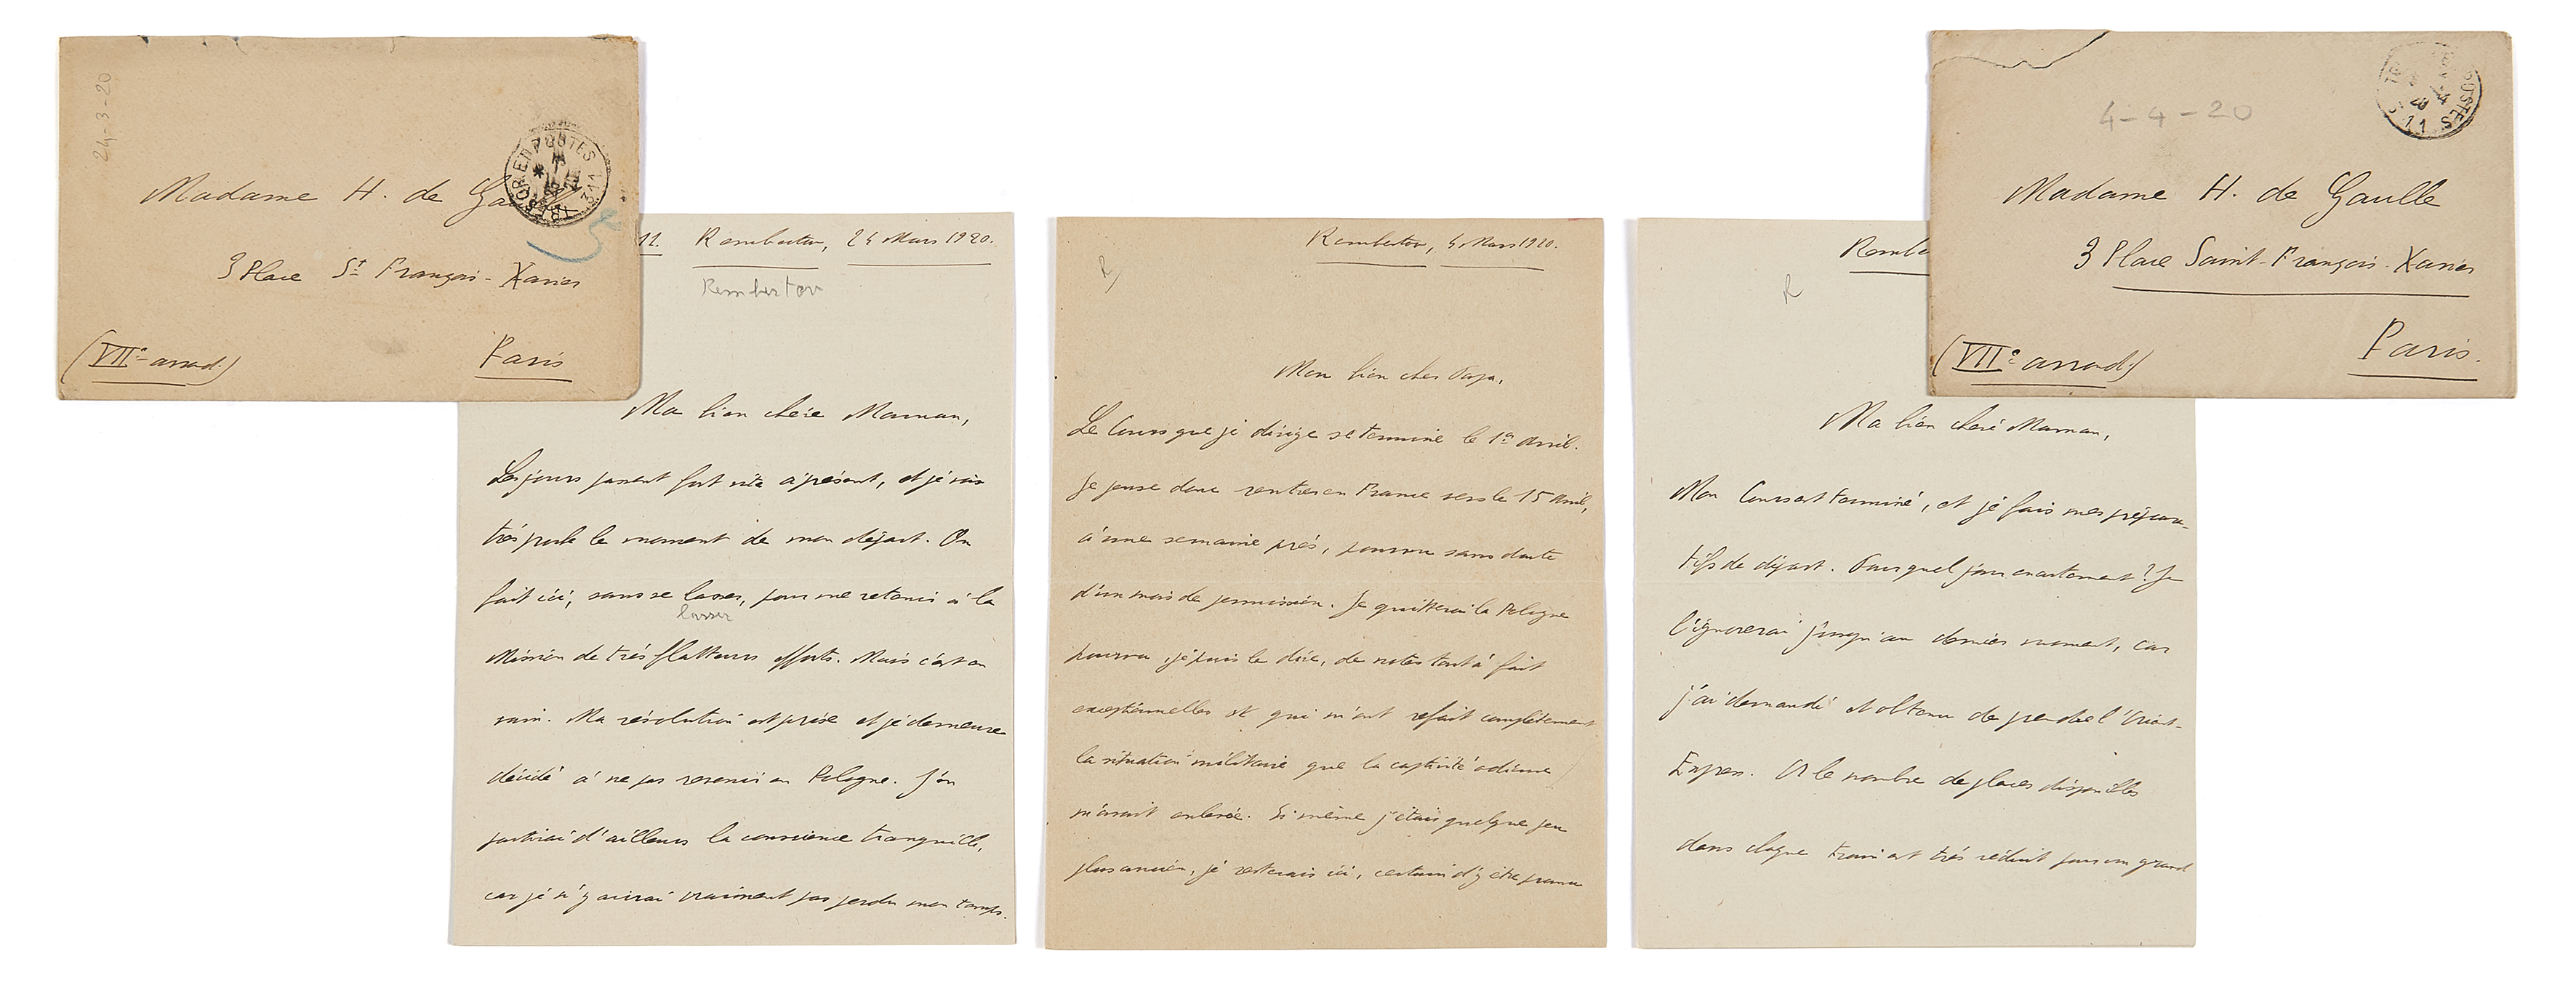 24-3-20
Madame H. de Gaulle
3 Place St François-Xavier
(VIIe arrond.)
Paris
POSTES
11. Rembertow, 24 Mars 1920.
Rembertow
Ma bien chère Maman,
Les jours passent fort vite à présent, et je vois
très proche le moment de mon départ. On
fait ici, sans se lasser, pour me retenir à la
lasser
Mission de très flatteurs efforts. Mais c'est en
vain. Ma résolution est prise et je demeure
décidé à ne pas revenir en Pologne. J'en
partirai d'ailleurs la conscience tranquille,
car je n'y aurai vraiment pas perdu mon temps.
Rembertow, 4 Mars 1920.
R
Mon bien cher Papa,
Le Cours que je dirige se termine le 1er avril.
Je pense donc rentrer en France vers le 15 Avril,
à une semaine près, pourvu sans doute
d'un mois de permission. Je quitterai la Pologne
pourvu, je puis le dire, de notes tout à fait
exceptionnelles et qui m'ont refait complètement
la situation militaire que la captivité odieuse
m'avait enlevée. Si même j'étais quelque peu
plus ancien, je resterais ici, certain d'y être promu
Rembe
R
Ma bien chère Maman,
Mon Cours est terminé, et je fais mes prépara-
tifs de départ. Pour quel jour exactement? Je
l'ignorerai jusqu'au dernier moment, car
j'ai demandé et obtenu de prendre l'Orient-
Express. Or le nombre de places disponibles
dans chaque train est très réduit pour un grand
4-4-20
POSTES
Madame H. de Gaulle
3 Place Saint-François-Xavier
(VIIe arrond)
Paris.